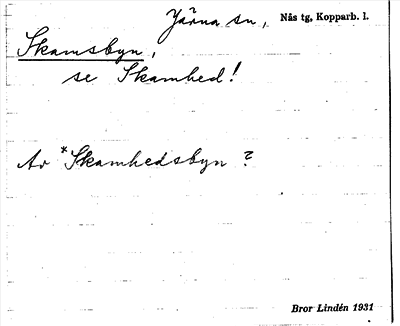 Järna sn, Nås tg, Kopparb. l.
Skamsbyn,
se Skamhed!
Av *Skamhedsbyn ?
Bror Lindén 1931